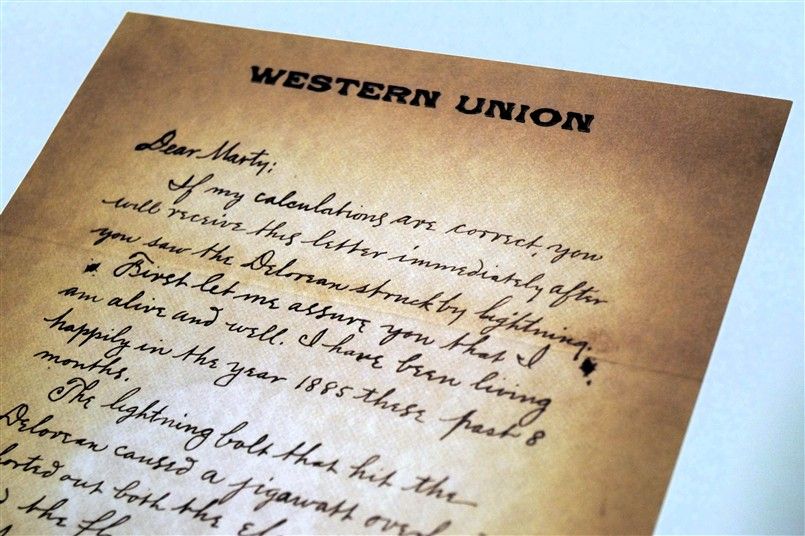 WESTERN UNION
Dear Marty;
If my calculations are correct, you
will receive this letter immediately after
you saw the Delorean struck by lightning.
First let me assure you that I
am alive and well. I have been living
happily in the year 1885 these past 8
months.
The lightning bolt that hit the
Delorean caused a jigawatt
out both the
the